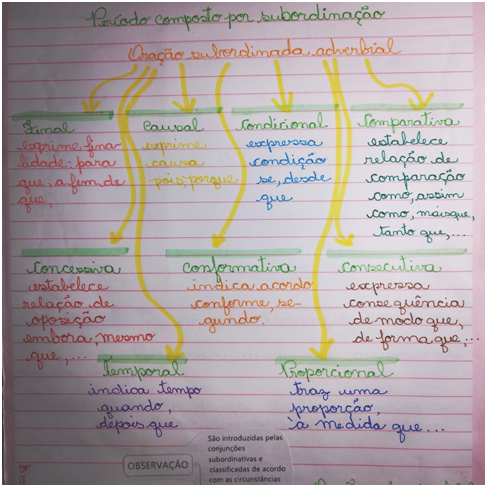 Período composto por subordinação
Oração subordinada adverbial
Final
exprime fina-
lidade: para
que, a fim de
que,
Causal
exprime
causa
pois, porque
Condicional
expressa
condição
se, desde
que
Comparativa
estabelece
relação de
comparação
como, assim
como, mais que,
tanto que,...
Concessiva
estabelece
relação de
oposição
embora, mesmo
que,...
Conformativa
indica acordo
conforme, se-
gundo.
Consecutiva
expressa
consequência
de modo que,
de forma que,...
Temporal
indica tempo
quando,
depois que
Proporcional
traz uma
proporção,
à medida que...
OBSERVAÇÃO
São introduzidas pelas
conjunções
subordinativas e
classificadas de acordo
com as circunstâncias